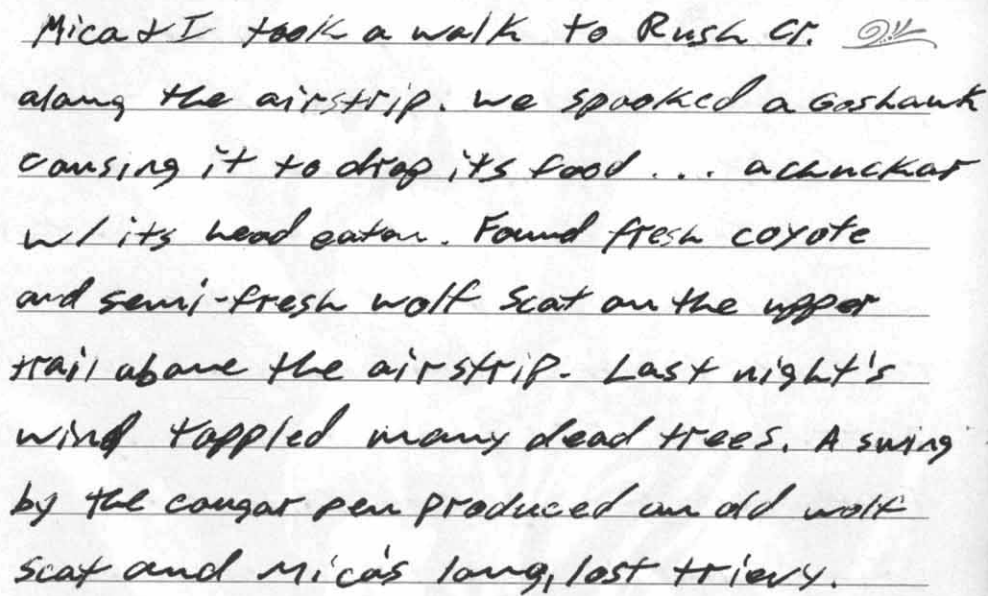 Mica & I took a walk to Rush Cr.
along the airstrip. We spooked a Goshawk
causing it to drop its food ... a chuckar
w/ its head eaten. Found fresh coyote
and semi-fresh wolf scat on the upper
trail above the airstrip. Last night's
wind toppled many dead trees. A swing
by the cougar pen produced an old wolf
scat and Mica's long, lost trievy.